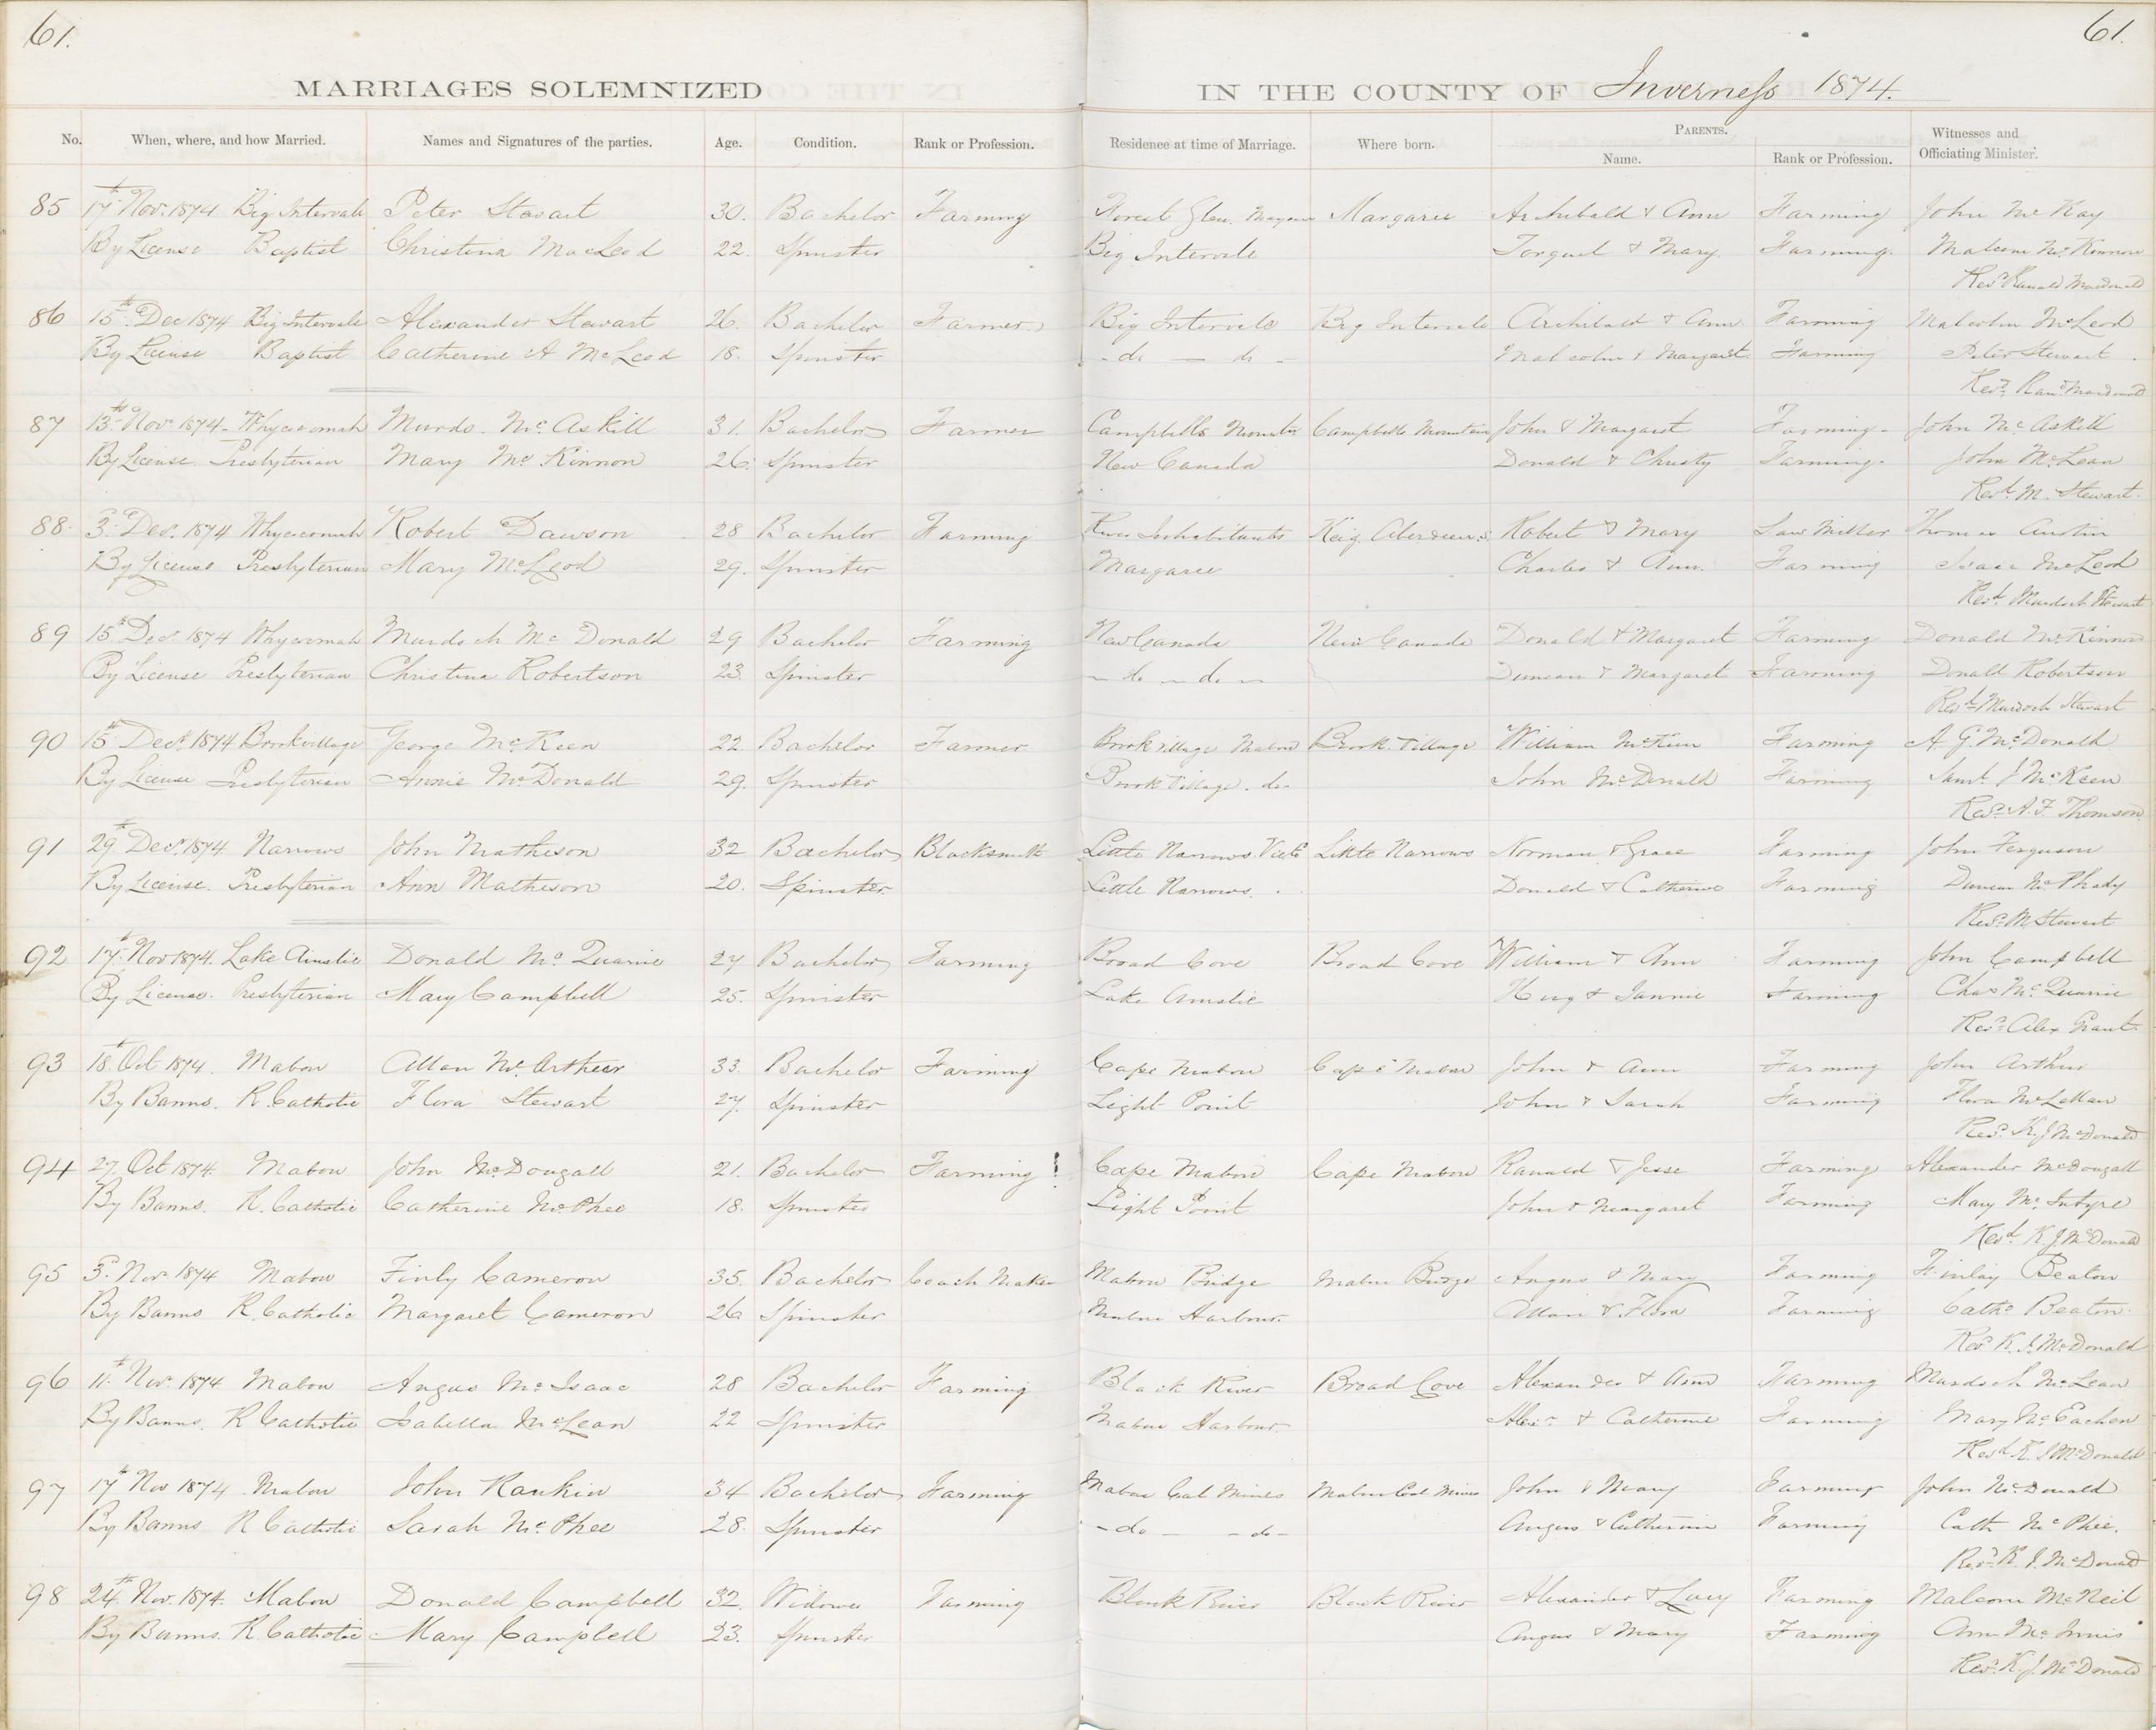 61.
61.
MARRIAGES SOLEMNIZED IN THE COUNTY OF Inverness 1874.
No. When, where, and how Married. Names and Signatures of the parties. Age. Condition. Rank or Profession. Residence at time of Marriage. Where born. PARENTS. Name. Rank or Profession. Witnesses and Officiating Minister.
85 17th Nov. 1874 Big Intervale Peter Stewart 30. Bachelor Farming Forest Glen. Margaree Archibald & Ann Farming John McKay
By License Baptist Christina MacLeod 22. Spinster Big Intervale Torquil & Mary Farming. Malcom McKinnon
Revd Ranald Macdonald
86 15th Dec 1874 Big Intervale Alexander Stewart 26. Bachelor Farmer Big Intervale Big Intervale Archibald & Ann Farming Malcolm McLeod
By License Baptist Catherine A McLeod 18. Spinster - do - do - Malcolm & Margaret Farming Peter Stewart
Revd Rand Macdonald
87 13th Nov. 1874 - Whycocomah Murdo. McAskill 31. Bachelor Farmer Campbells Mountn Campbells Mountain John & Margaret Farming - John McAskill
By License Presbyterian Mary McKinnon 26. Spinster New Canada Donald & Christy Farming. John McLean
Revd. M. Stewart.
88. 3d Decr. 1874 Whycocomah Robert Dawson 28 Bachelor Farming River Inhabitants Keig. Aberdeens. Robert & Mary Saw Miller Thomas Austin
By License Presbyterian Mary McLeod 29. Spinster Margaree Charles & Ann. Farming Isaac McLeod
Revd. Murdoch Stewart
89 15th Decr. 1874 Whycocomah Murdoch McDonald 29 Bachelor Farming New Canada New Canada Donald & Margaret Farming Donald McKinnon
By License Presbyterian Christina Robertson 23. Spinster - do - do - Duncan & Margaret Farming Donald Robertson
Revd Murdoch Stewart
90 15th Decr. 1874 Brookvillage George McKeen 22 Bachelor Farmer Brookvillage Mabou Brook Village William McKeen Farming A. G. McDonald
By License Presbyterian Annie McDonald 29. Spinster Brook Village. do. John McDonald Farming Saml. J McKeen
Revd A. F. Thomson
91 29th Decr. 1874 Narrows John Matheson 32 Bachelor Blacksmith Little Narrows Victa Little Narrows Norman & Grace Farming John Ferguson
By License. Presbyterian Ann Matheson 20. Spinster Little Narrows. Donald & Catherine Farming Duncan McPhady
Revd. M. Stewart
92 17th Nov 1874. Lake Ainslie Donald McQuarrie 27 Bachelor Farming Broad Cove Broad Cove William & Ann Farming John Campbell
By License. Presbyterian Mary Campbell 25. Spinster Lake Ainslie Hug & Jannie Farming Chas McQuarrie
Revd. Alex Grant.
93 18th Oct 1874. Mabou Allan McArthur 33. Bachelor Farming Cape Mabou Cape Mabou John & Ann Farming John Arthur
By Banns. R. Catholic Flora Stewart 27. Spinster Light Point John & Sarah Farming Flora McLellan
Revd. K. J McDonald
94 27. Oct 1874. Mabou John McDougall 21. Bachelor Farming Cape Mabou Cape Mabou Ranald & Jesse Farming Alexander McDougall
By Banns. R. Catholic Catherine McPhee 18. Spinster Light Point John & Margaret Farming Mary McIntyre
Revd. K. J McDonald
95 3d. Nov. 1874 Mabou Finly Cameron 35. Bachelor Coach Maker Mabou Bridge Mabou Bridge Angus & Mary Farming Finlay Beaton
By Banns R. Catholic Margaret Cameron 26 Spinster Mabou Harbour. Allan & Flora Farming Cathe Beaton.
Revd K. J. McDonald
96 11th Nov. 1874 Mabou Angus McIsaac 28 Bachelor Farming Black River Broad Cove Alexander & Ann Farming Murdoch McLean
By Banns. R Catholic Isabella McLean 22 Spinster Mabou Harbour. Alexr & Catherine Farming Mary McEachen
Revd K. J McDonald
97 17th Nov 1874 Mabou John Rankin 34 Bachelor Farming Mabou Coal Mines Mabou Coal Mines John & Mary Farming John McDonald
By Banns R Catholic Sarah McPhee 28. Spinster - do - - do - Angus & Catherine Farming Cath McPhee.
Revd. K. J. McDonald
98 24th Nov. 1874. Mabou Donald Campbell 32. Widower Farming Black River Black River Alexander & Lucy Farming Malcom McNeil
By Banns. R. Catholic Mary Campbell 23. Spinster Angus & Mary Farming Ann McInnis
Revd. K. J. McDonald